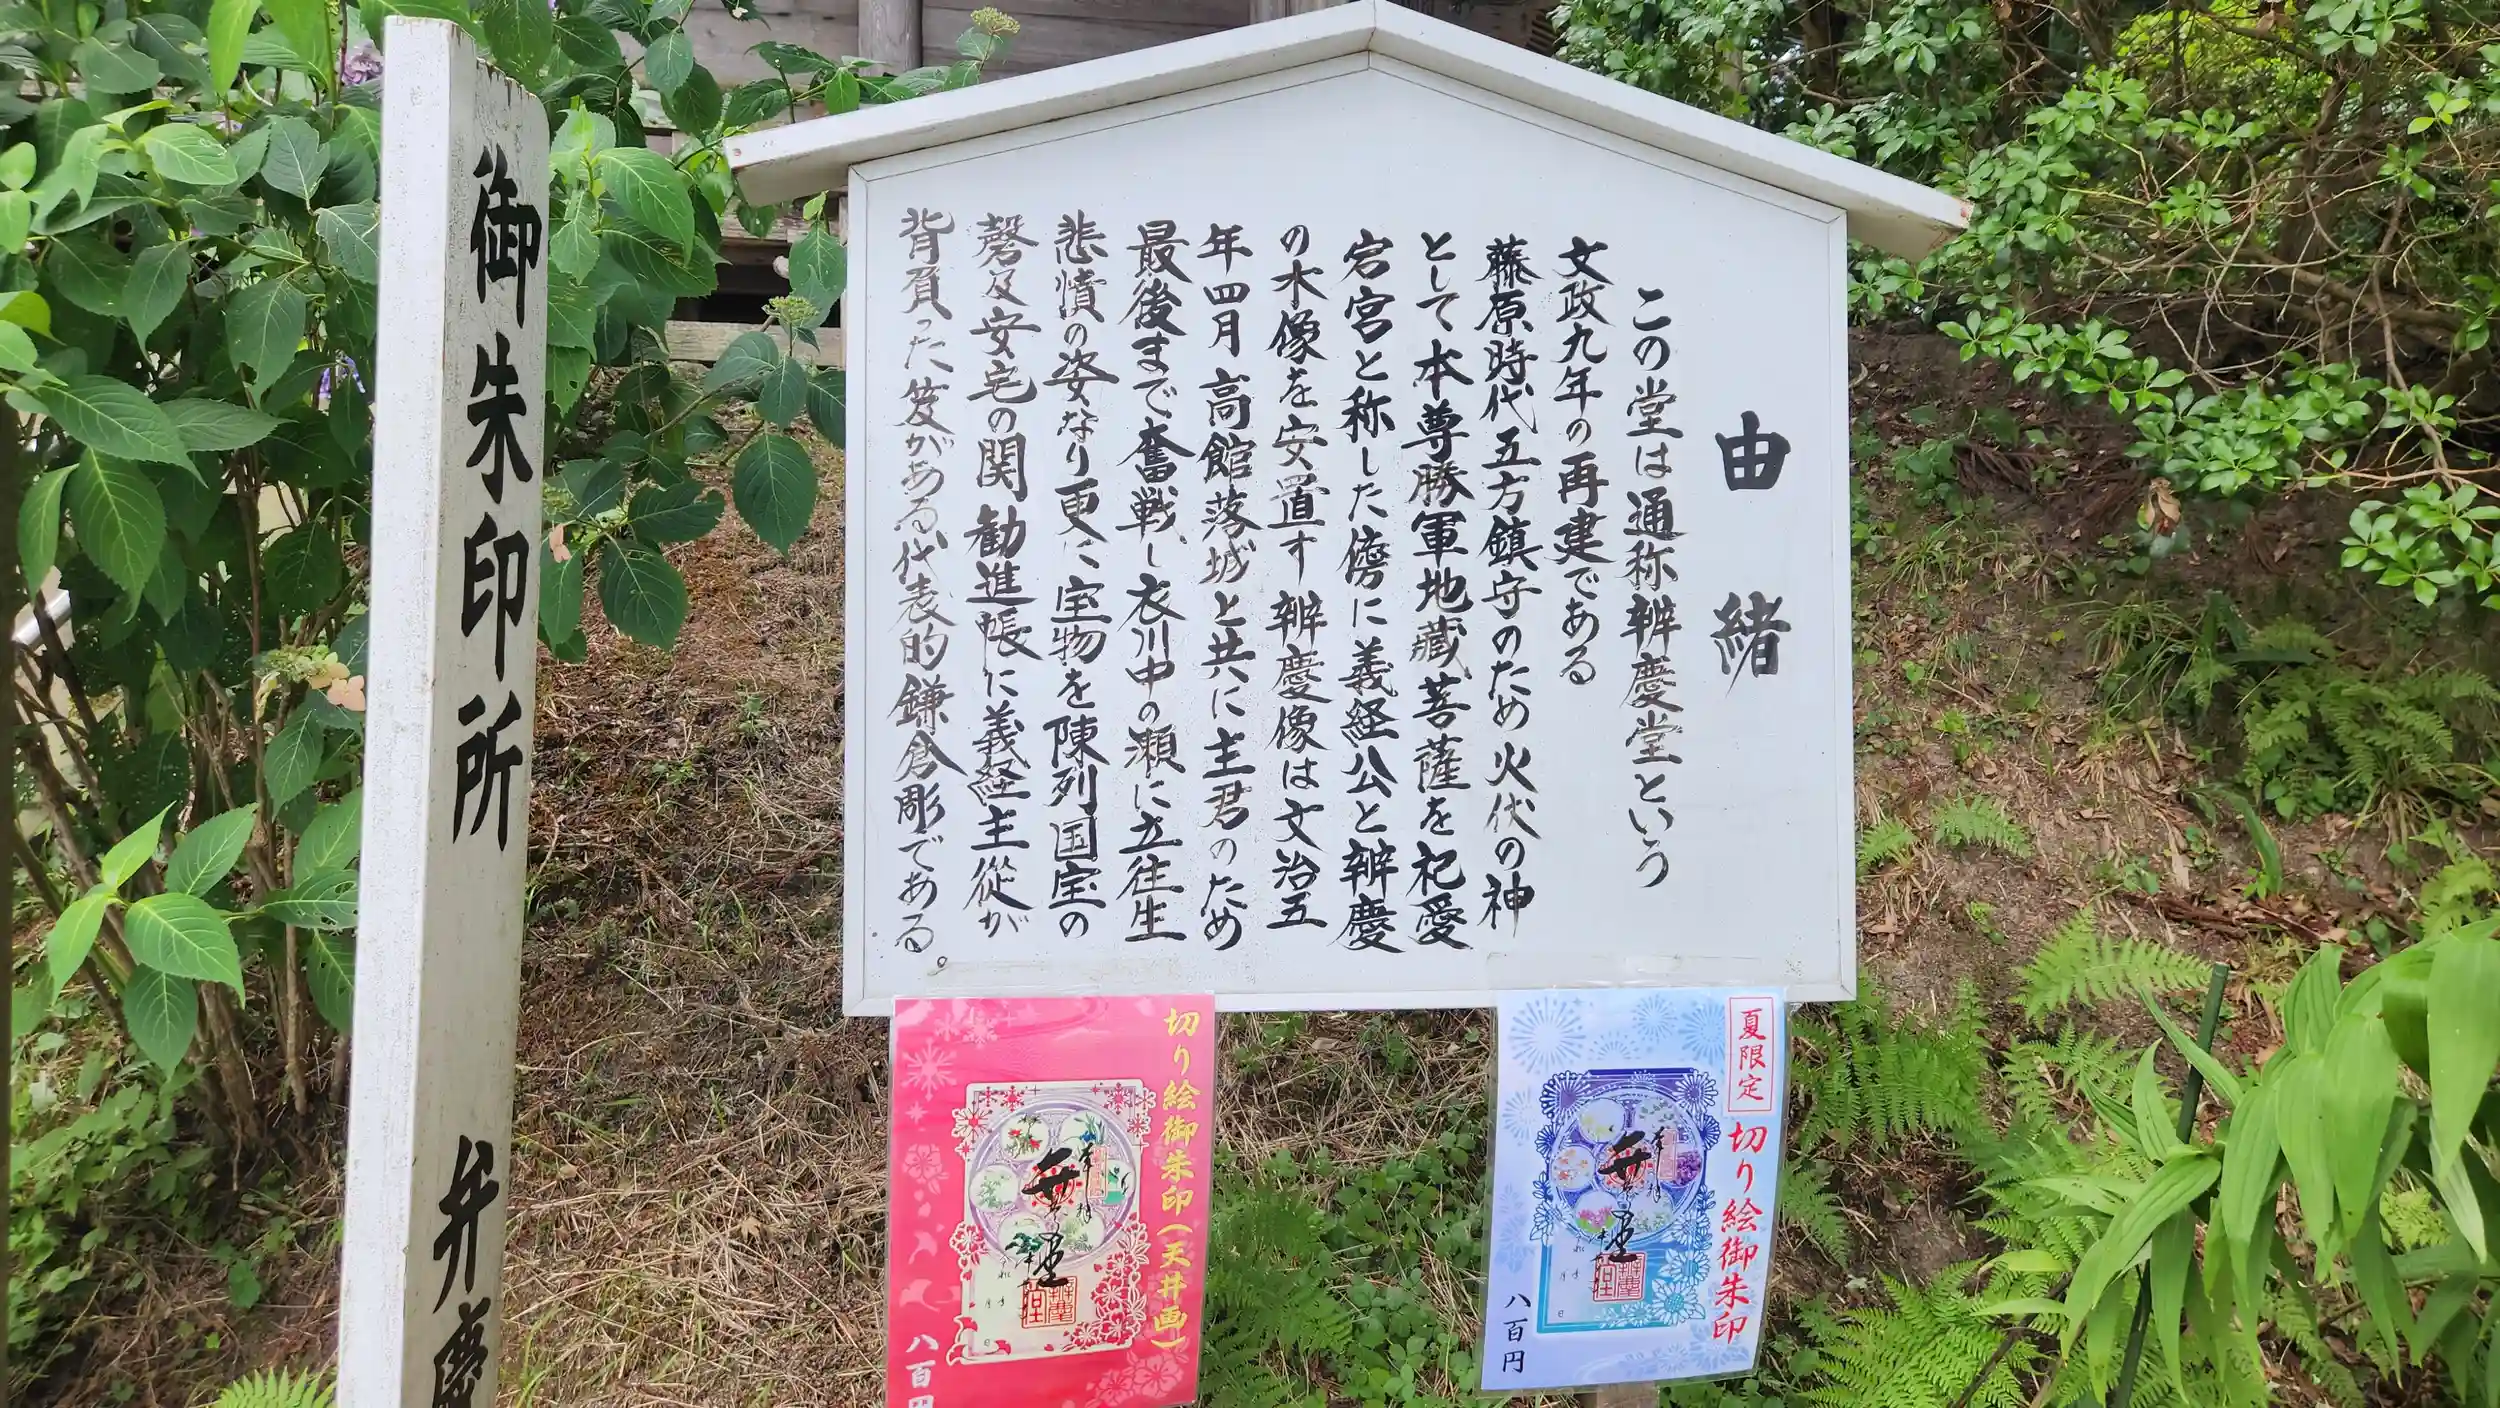 由緒
この堂は通称辨慶堂という
文政九年の再建である
藤原時代五方鎮守のため火伏の神
として本尊勝軍地蔵菩薩を祀愛
宕宮と称した傍に義経公と辨慶
の木像を安置す辨慶像は文治五
年四月高館落城と共に主君のため
最後まで奮戦し衣川中の瀬に立往生
悲憤の姿なり更に宝物を陳列国宝の
磬及安宅の関勧進帳に義経主従が
背負った笈がある代表的鎌倉彫である。
御朱印所 弁慶
夏限定
切り絵御朱印
八百円
切り絵御朱印(天井画)
八百円